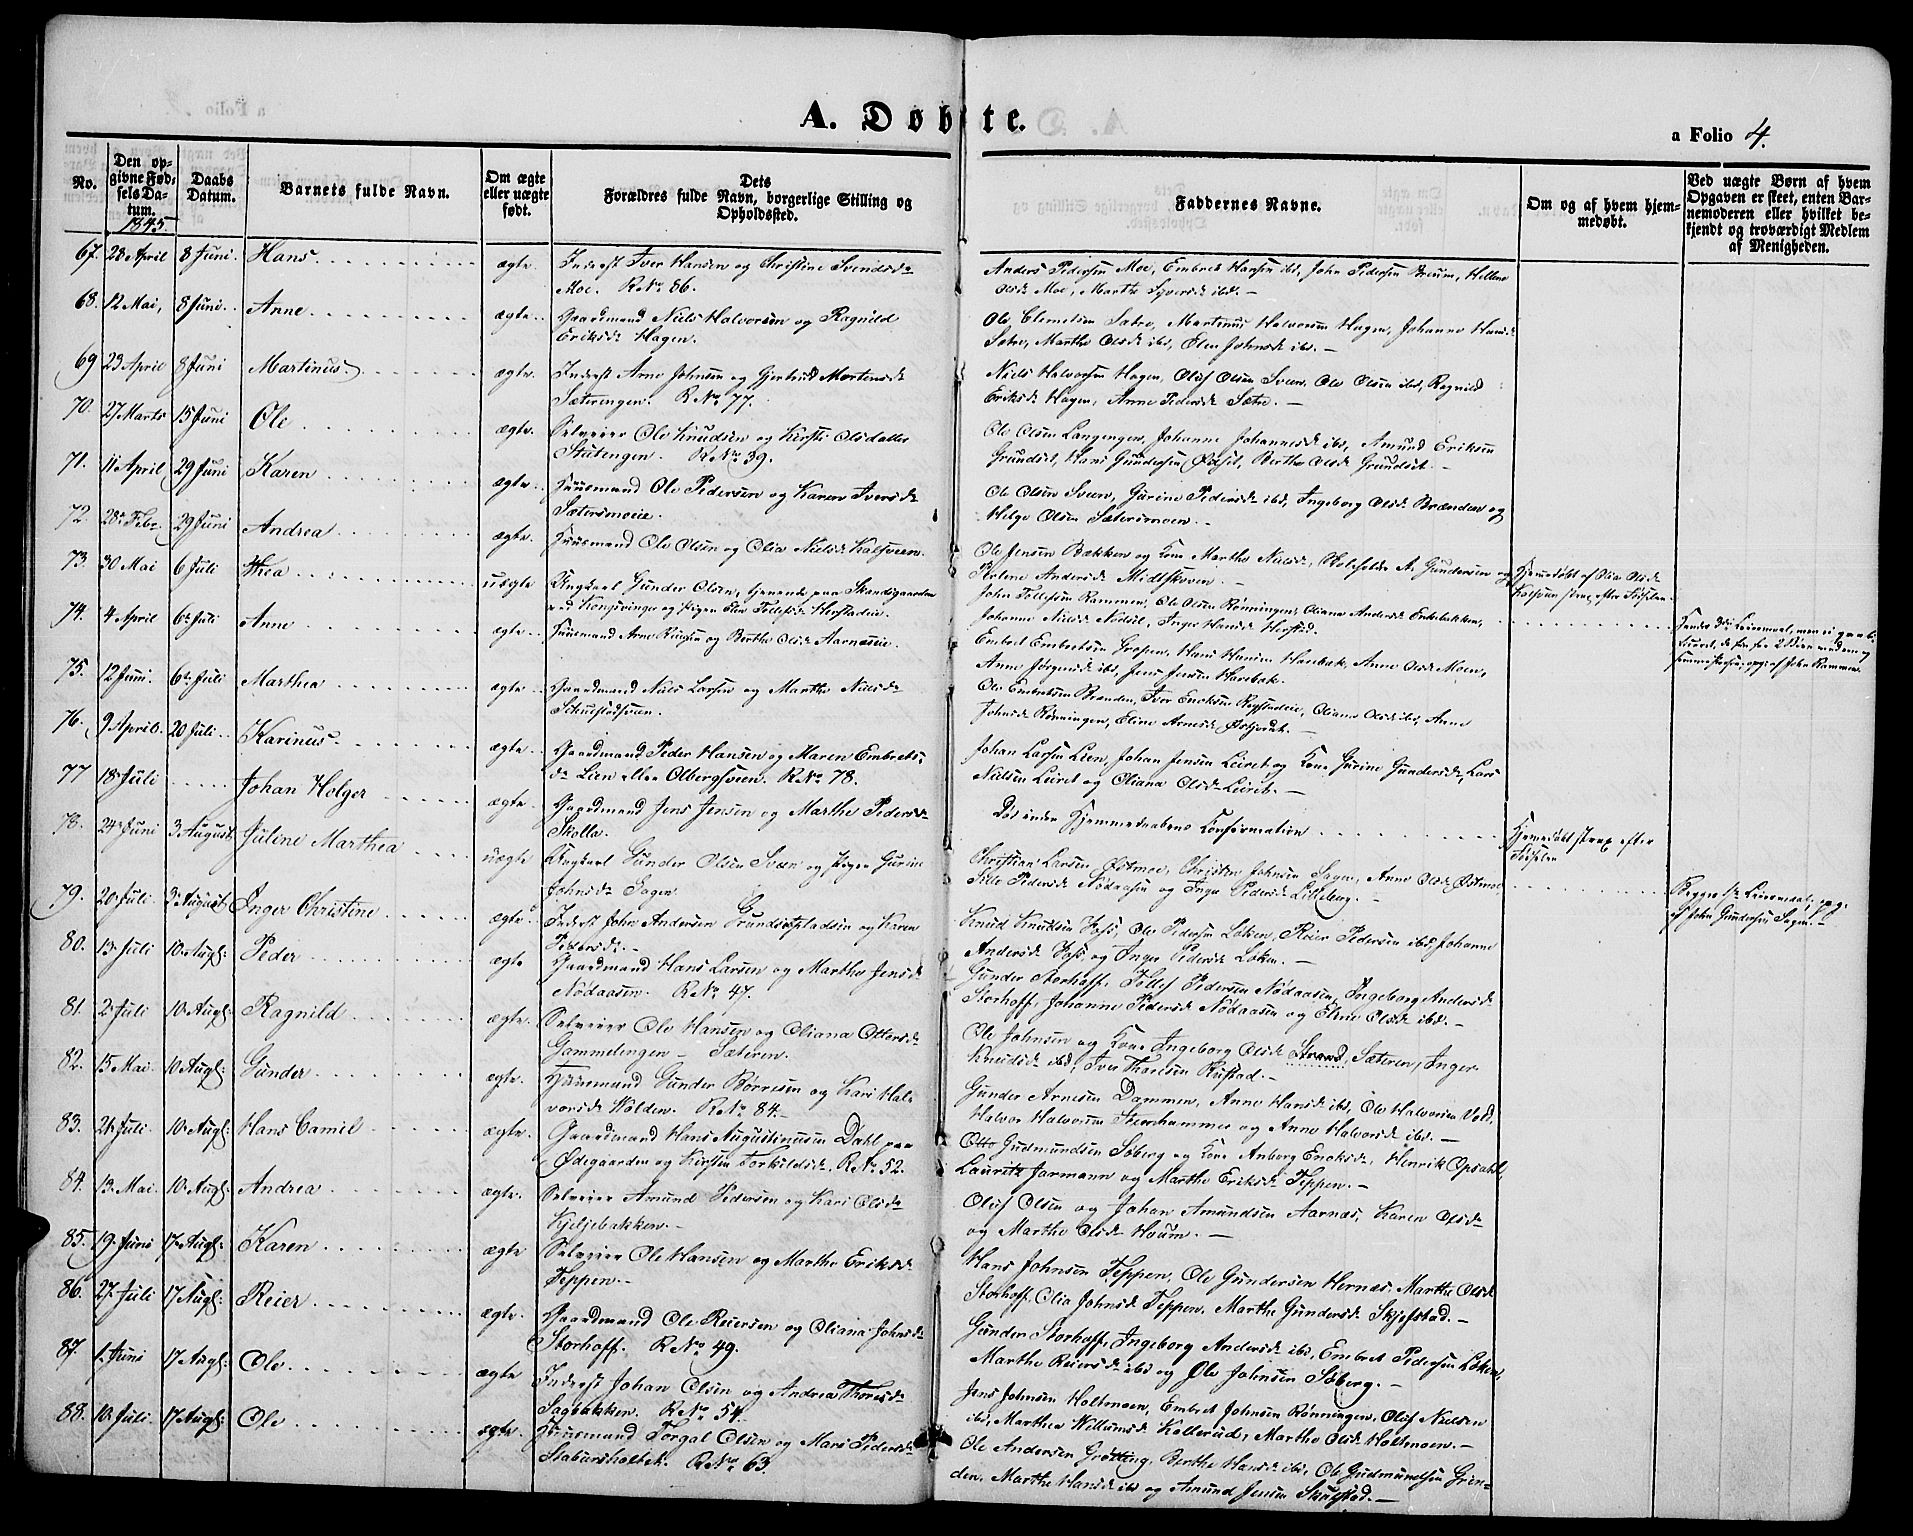 A. Døbte.
a Folio 4.
No.
Den opgivne Fødsels Datum.
Daabs Datum.
Barnets fulde Navn.
Om ægte eller uægte født.
Dets Forældres fulde Navn, borgerlige Stilling og Opholdssted.
Faddernes Navne.
Om og af hvem hjemmedøbt.
Ved uægte Børn af hvem Opgaven er skeet, enten Barnemoderen eller hvilket bekjendt og troværdigt Medlem af Menigheden.
1845
67. 28 April 8 Juni Hans ægte. Inderst Iver Hansen og Christine Svendsdr
Moe. RNr. 86.
Anders Pedersen Moe, Embret Hansen ibd, John Pedersen Breum, Hellene
Olsdr Moe, Marthe Syversdr ibd.
68. 12 Mai, 8 Juni Anne ægte. Gaardmand Niels Halvorsen og Ragnild
Eriksdr Hagen.
Ole Clemetsen Sætre, Martinus Halvorsen Hagen, Johanne Hansdr
Sætre, Marthe Olsdr ibd, Elen Johnsdr ibd.
69 23 April 8 Juni Martinus ægte. Inderst Arne Johnsen og Gjertrud Mortensdr
Sæterengen. RNr. 77.
Niels Halvorsen Hagen, Oluf Olsen Sveen, Ole Olsen ibd, Ragnild
Eriksdr Hagen, Anne Pedersdr Sætre.
70. 27 Marts 15 Juni Ole ægte. Selveier Ole Knudsen og Kirsti Olsdatter
Stutengen. RNr. 39.
Ole Olsen Langengen, Johanne Johannesdr ibd, Amund Eriksen
Grundset, Hans Gundersen Ødset, Berthe Olsdr Grundset.
71. 11 April 29 Juni Karen ægte. Huusmand Ole Pedersen og Karen Iversdr
Sætersmoeie.
Ole Olsen Sveen, Gurine Pedersdr ibd, Ingeborg Olsdr Brænden og
Helge Olsen Sætersmoen.
72. 28 Febr. 29 Juni Andrea ægte. Huusmand Ole Olsen og Olia Nielsdr Kalsveen.
Ole Jensen Bækken og Kone Marthe Nielsdr, Skoleholder A. Gundersen og
Helene Andersdr Midtskoven.
Hjemmedøbt af Olia Olsdr
Kalsveen strax efter Fødselen.
73. 30 Mai 6 Juli Thea uægte Ungkarl Gunder Olsen, tjenende paa Skandsgaarden
ved Kongsvinger og Pigen Eli Tollefsdr Herstadeie.
John Tollefsen Rammen, Ole Olsen Rønningen, Oliana Andersdr Enkebakken,
Johanne Nielsdr Nødset, Inger Hansdr Herstad.
74. 4 April 6 Juli Anne ægte. Huusmand Arne Knudsen og Berthe Olsdr Aarnæseie.
Embret Embretsen Gropen, Hans Hansen Hanebæk, Anne Olsdr Moen,
Anne Jørgensdr ibd, Jens Jensen Hanebæk.
75. 12 Juni. 6 Juli Marthea ægte. Gaardmand Niels Larsen og Marthe Nielsdr
Schulstadsveen.
Ole Embretsen Brænden, Iver Ericksen Rogstadeie, Oliana Olsdr ibd, Anne
Johnsdr Rønningen, Eline Arnesdr Østhvedt.
76. 9 April. 20 Juli Karinus ægte. Gaardmand Peder Hansen og Maren Embrets
dr Lien eller Olbergsveen. RNr. 78.
Johan Larsen Lien, Johan Jensen Leiret og Kone Gurine Gundersdr, Lars
Nielsen Leiret og Oliana Olsdr Leiret.
77 18 Juli Johan Holger ægte. Gaardmand Jens Jensen og Marthe Pedersdr
Skolle.
Død inden Hjemmedaabens Confirmation
Hjemmedøbt strax efter
Fødselen
78. 24 Juni 3 August Juline Marthea uægte Ungkarl Gunder Olsen Sveen og Pigen Gurine
Johnsdr Sagen
Christian Larsen Østmoe, Christen Johnsen Sagen, Anne Olsdr Østmoe
Sille Pedersdr Nødaasen og Inger Pedersdr Lilleberg.
Begges 1ste Leiermaal, opg.
af John Gundersen Sagen.
79. 20 Juli 3 August Inger Christine ægte. Inderst John Andersen Grundsetpladsen og Karen
Pedersdr.
Knud Knudsen Foss, Ole Pedersen Løken, Reier Pedersen ibd, Johanne
Andersdr Foss og Inger Pedersdr Løken.
80. 13 Juli 10 Augst: Peder ægte Gaardmand Hans Larsen og Marthe Jensdr
Nødaasen. RNr. 47.
Gunder Storhoff, Tollef Pedersen Nødaasen, Ingeborg Andersdr
Storhoff, Johanne Pedersdr Nødaasen og Eline Olsdr ibd.
81. 2 Juli 10 Augst: Ragnild ægte. Selveier Ole Hansen og Oliana Ottersdr
Gammelengen – Sæteren.
Ole Johnsen og Kone Ingeborg Olsdr Strand, Sæteren, Inger
Knudsdr ibd, Iver Thoresen Rustad.
82. 15 Mai 10 Augst: Gunder ægte. Huusmand Gunder Børresen og Kari Hal-
vorsdr Volden. RNr. 84.
Gunder Arnesen Dammen, Anne Hansdr ibd, Ole Halvorsen Vold,
Halvor Halvorsen Storhammer og Anne Halvorsdr ibd.
83. 21 Juli 10 Augst: Hans Camil ægte. Gaardmand Hans Augustinussen Dahl paa
Ødegaarden og Kirsten Torkildsdr. RNr. 52.
Otto Gudmundsen Søberg og Kone Anberg Ericksdr, Henrik Opsahl,
Lauritz Jarmann og Marthe Eriksdr Teppen.
84. 13 Mai 10 Augst: Andrea ægte. Selveier Amund Pedersen og Kari Olsdr
Kjeljebakken.
Oluf Olsen og Johan Amundsen Aarnæs, Karen Olsdr
og Marthe Olsdr Houm.
85. 19 Juni 17 Augst: Karen ægte Selveier Ole Hansen og Marthe Eriksdr
Teppen.
Hans Johnsen Teppen, Ole Gundersen Hernæs, Marthe Olsdr
Storhoff, Olia Johnsdr Teppen, Marthe Gundersdr Skjefstad.
86. 27 Juli 17 Augst: Reier ægte. Gaardmand Ole Reiersen og Oliana Johnsdr
Storhoff. RNr. 49.
Gunder Storhoff, Ingeborg Andersdr ibd, Embret Pedersen Løken,
Marthe Reiersdr ibd og Ole Johnsen Søberg.
87. 1 Juni 17 Augst: Ole ægte Inderst Johan Olsen og Andrea Thoresdr
Sagbakken. RNr. 54.
Jens Johnsen Holtmoen, Embret Johnsen Rønningen, Oluf Nielsen
ibd, Marthea Willumsdr Kollerud, Marthe Olsdr Holtmoen.
88. 10 Juli 17 Augst: Ole ægte. Huusmand Torgal Olsen og Mari Pedersdr
Stabursholtet. RNr. 63.
Ole Andersen Grøtting, Berthe Hansdr ibd, Ole Gudmundsen Grin-
den, Marthe Hansdr ibd og Amund Jensen Skulstad.